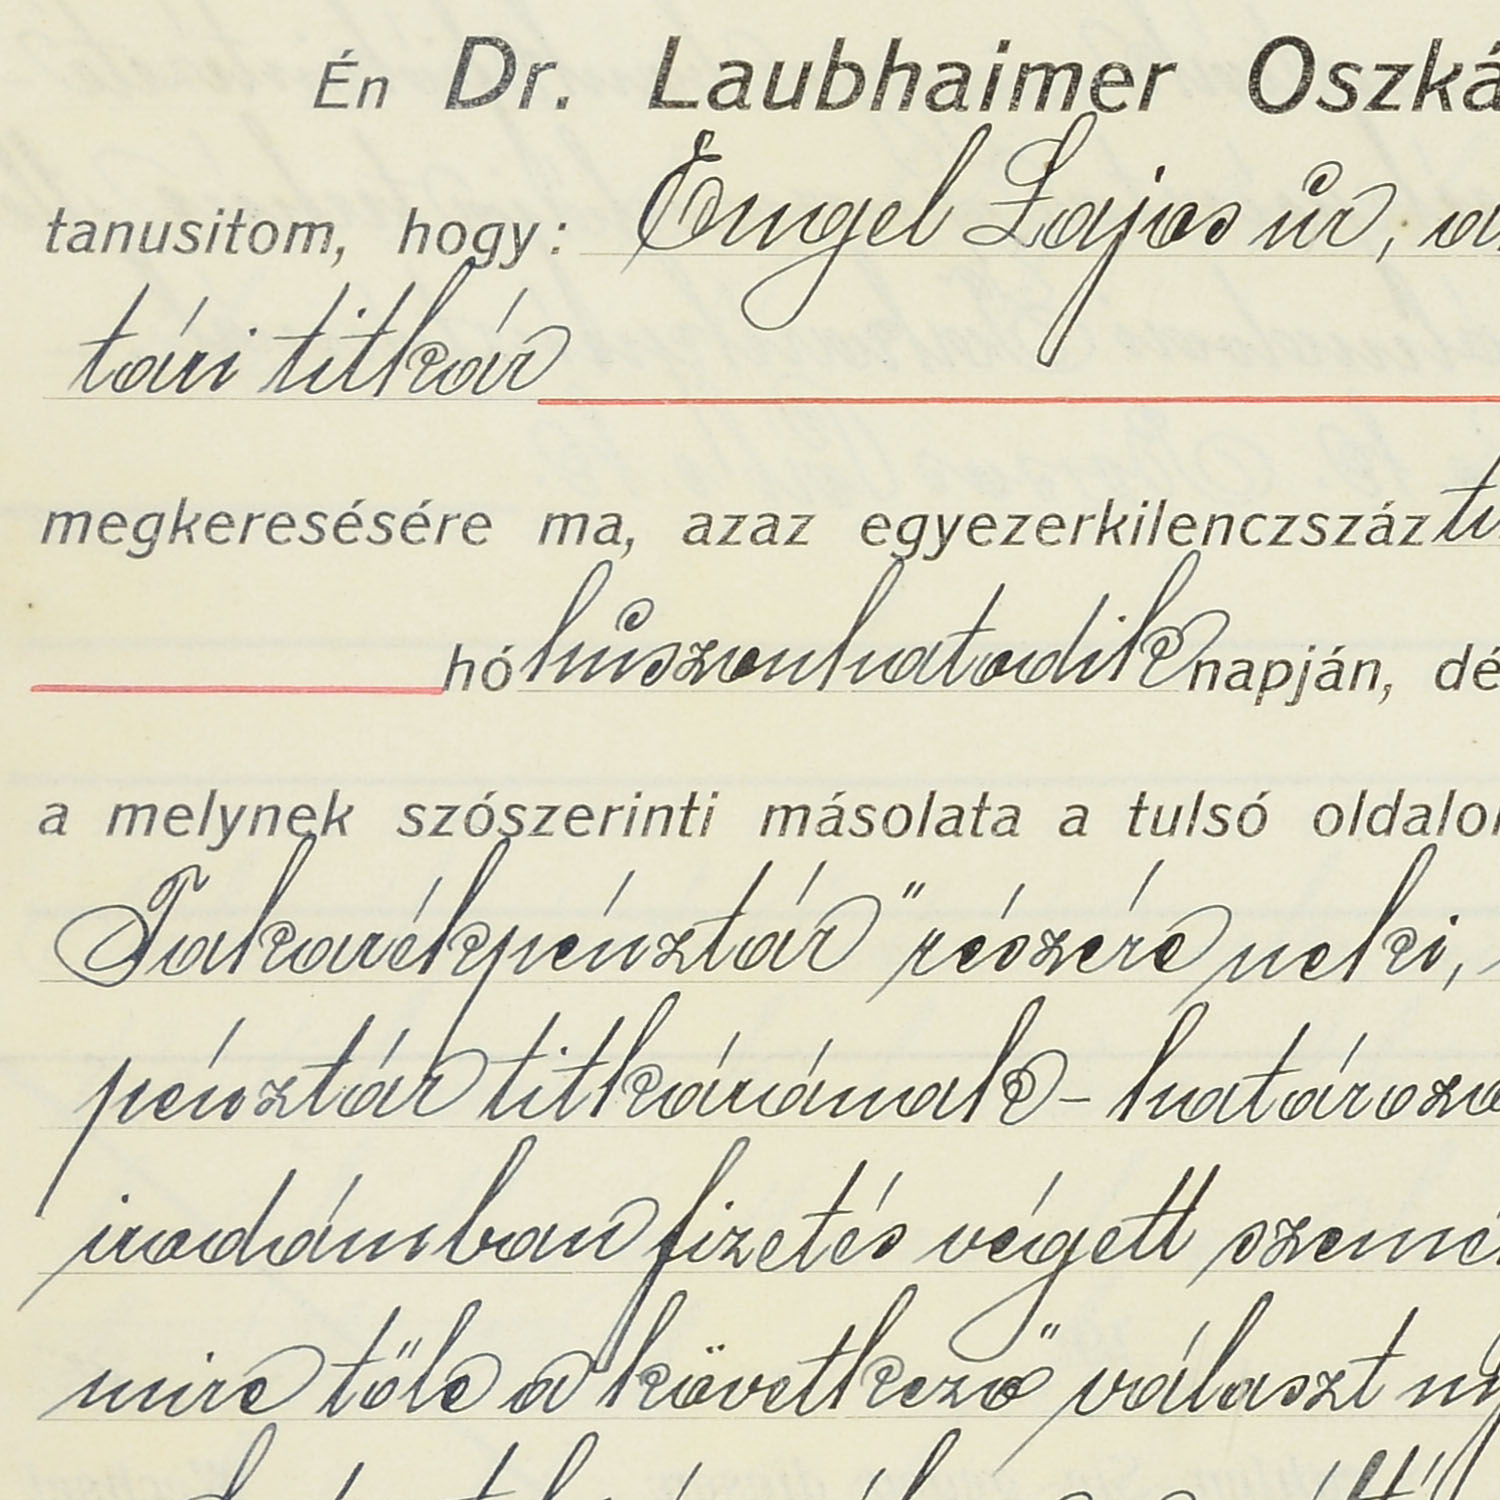 Én Dr. Laubhaimer Oszká
tanusitom, hogy: Engel Lajos úr, a
tári titkár
megkeresésére ma, azaz egyezerkilenczszáz ti
hó húszonhatodik napján, dé
a melynek szószerinti másolata a tulsó oldalon
Takarékpénztár" részére neki,
pénztár titkárának - határozo
irodámban fizetés végett szemé
mire tőle a következő választ ny